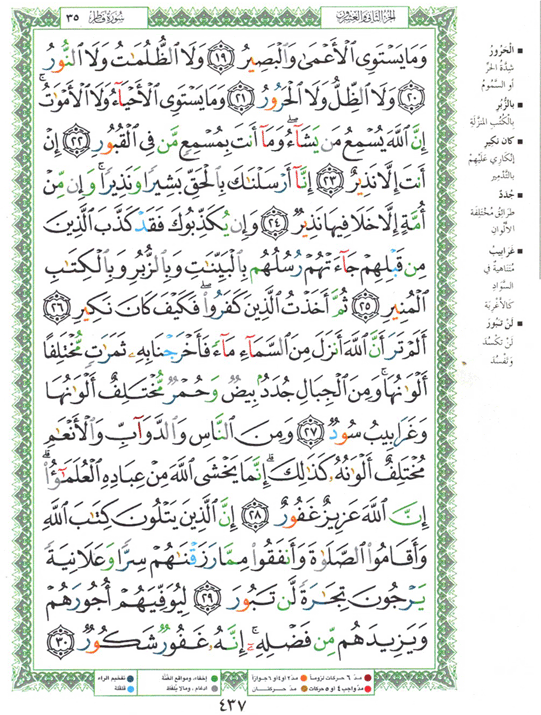 سورة فاطر ٣٥
الجزء الثاني والعشرون
وَمَا يَسْتَوِي الْأَعْمَىٰ وَالْبَصِيرُ ﴿١٩﴾ وَلَا الظُّلُمَاتُ وَلَا النُّورُ
﴿٢٠﴾ وَلَا الظِّلُّ وَلَا الْحَرُورُ ﴿٢١﴾ وَمَا يَسْتَوِي الْأَحْيَاءُ وَلَا الْأَمْوَاتُ ۚ
إِنَّ اللَّهَ يُسْمِعُ مَن يَشَاءُ ۖ وَمَا أَنتَ بِمُسْمِعٍ مَّن فِي الْقُبُورِ ﴿٢٢﴾ إِنْ
أَنتَ إِلَّا نَذِيرٌ ﴿٢٣﴾ إِنَّا أَرْسَلْنَاكَ بِالْحَقِّ بَشِيرًا وَنَذِيرًا ۚ وَإِن مِّنْ
أُمَّةٍ إِلَّا خَلَا فِيهَا نَذِيرٌ ﴿٢٤﴾ وَإِن يُكَذِّبُوكَ فَقَدْ كَذَّبَ الَّذِينَ
مِن قَبْلِهِمْ جَاءَتْهُمْ رُسُلُهُم بِالْبَيِّنَاتِ وَبِالزُّبُرِ وَبِالْكِتَابِ
الْمُنِيرِ ﴿٢٥﴾ ثُمَّ أَخَذْتُ الَّذِينَ كَفَرُوا ۖ فَكَيْفَ كَانَ نَكِيرِ ﴿٢٦﴾
أَلَمْ تَرَ أَنَّ اللَّهَ أَنزَلَ مِنَ السَّمَاءِ مَاءً فَأَخْرَجْنَا بِهِ ثَمَرَاتٍ مُّخْتَلِفًا
أَلْوَانُهَا ۚ وَمِنَ الْجِبَالِ جُدَدٌ بِيضٌ وَحُمْرٌ مُّخْتَلِفٌ أَلْوَانُهَا
وَغَرَابِيبُ سُودٌ ﴿٢٧﴾ وَمِنَ النَّاسِ وَالدَّوَابِّ وَالْأَنْعَامِ
مُخْتَلِفٌ أَلْوَانُهُ كَذَٰلِكَ ۗ إِنَّمَا يَخْشَى اللَّهَ مِنْ عِبَادِهِ الْعُلَمَاءُ ۗ
إِنَّ اللَّهَ عَزِيزٌ غَفُورٌ ﴿٢٨﴾ إِنَّ الَّذِينَ يَتْلُونَ كِتَابَ اللَّهِ
وَأَقَامُوا الصَّلَاةَ وَأَنفَقُوا مِمَّا رَزَقْنَاهُمْ سِرًّا وَعَلَانِيَةً
يَرْجُونَ تِجَارَةً لَّن تَبُورَ ﴿٢٩﴾ لِيُوَفِّيَهُمْ أُجُورَهُمْ
وَيَزِيدَهُم مِّن فَضْلِهِ ۚ إِنَّهُ غَفُورٌ شَكُورٌ ﴿٣٠﴾
■ الْحَرُورُ
شِدَّةُ الحَرِّ
أو السَّمُومُ
■ بالزُّبُرِ
بالكُتُبِ المُنَزَّلَةِ
■ كان نكير
إنكاري عليهم
بالتَّدمير
■ جُدَدٌ
طرائق مُختلفة
الألوان
■ غَرَابيبُ
مُتناهية في
السَّواد
كالأغربة
■ لَنْ تَبُورَ
لَن تكْسُدَ
وتفسد
مدّ ٦ حركات لزوماً
مدّ ٢ أو ٤ أو ٦ جوازاً
إخفاء، ومواقع الغنّة
تفخيم الراء
مدّ واجب ٤ أو ٥ حركات
مدّ حركتان
ادغام، ومالا يلفظ
قلقلة
٤٣٧